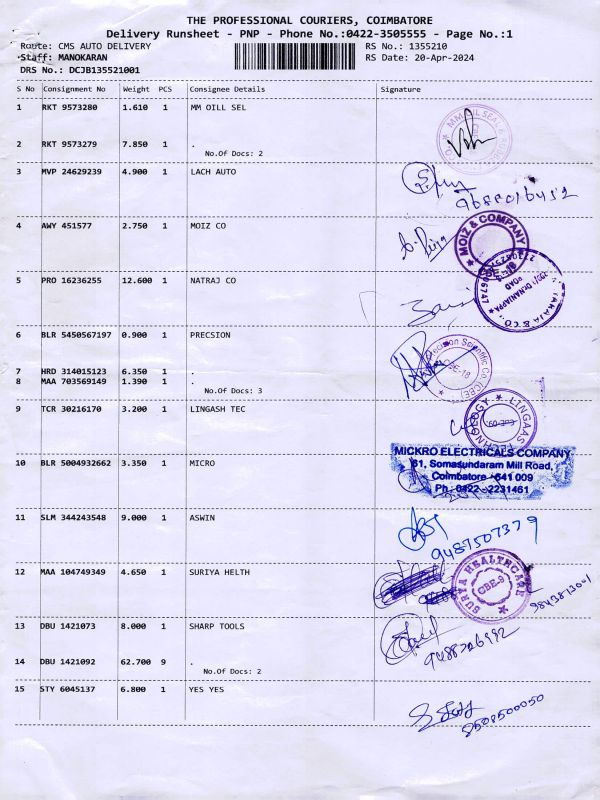 THE PROFESSIONAL COURIERS, COIMBATORE
Delivery Runsheet - PNP - Phone No.:0422-3505555 - Page No.:1
Route: CMS AUTO DELIVERY RS No.: 1355210
Staff: MANOKARAN RS Date: 20-Apr-2024
DRS No.: DCJB135521001
S No Consignment No Weight PCS Consignee Details Signature
1 RKT 9573280 1.610 1 MM OILL SEL
2 RKT 9573279 7.850 1 .
No.Of Docs: 2
3 MVP 24629239 4.900 1 LACH AUTO
4 AWY 451577 2.750 1 MOIZ CO
MOIZ & COMPANY
5 PRO 16236255 12.600 1 NATRAJ CO
6 BLR 5450567197 0.900 1 PRECSION
7 HRD 314015123 6.350 1 .
8 MAA 703569149 1.390 1 .
No.Of Docs: 3
CBE-18
9 TCR 30216170 3.200 1 LINGASH TEC
MICKRO ELECTRICALS COMPANY
61, Somasundaram Mill Road,
Coimbatore - 641 009
Ph : 0422 - 2231461
10 BLR 5004932662 3.350 1 MICRO
11 SLM 344243548 9.000 1 ASWIN
9487507379
12 MAA 104749349 4.650 1 SURIYA HELTH
SURYA HEALTHCARE
CBE-9
13 DBU 1421073 8.000 1 SHARP TOOLS
14 DBU 1421092 62.700 9 .
No.Of Docs: 2
15 STY 6045137 6.800 1 YES YES
8508500050